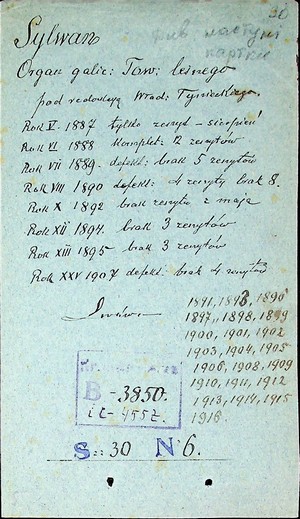 30
Див наступні
картки
Sylwan
Organ galic: Tow: leśnego
pod redakcyą Wład: Tynieckiego.
Rok V - 1887 tylko zeszyt - sierpień
Rok VI 1888 komplet: 12 zeszytów
Rok VII 1889. defekt: brak 5 zeszytów
Rok VIII 1890 defekt: 4 zeszyty brak 8.
Rok X 1892 brak zeszytu z maja
Rok XII 1894. brak 3 zeszytów
Rok XIII 1895 brak 3 zeszytów
Rok XXV 1907 defekt: brak 4 zeszytów
Lwów
1891, 1893, 1896
1897, 1898, 1899
1900, 1901, 1902
1903, 1904, 1905
1906, 1908, 1909
1910, 1911, 1912
1913, 1914, 1915
1916.
B - 3850.
ic-4552.
S:: 30 N 6.